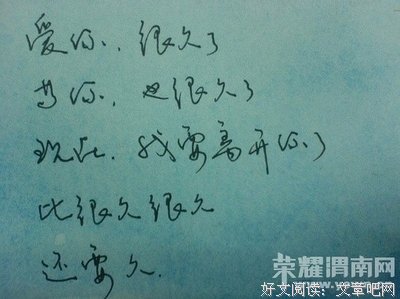 爱你、很久了
等你、也很久了
现在、我要离开你了
比很久很久
还要久.
荣耀渭南网
好文阅读:文章吧网